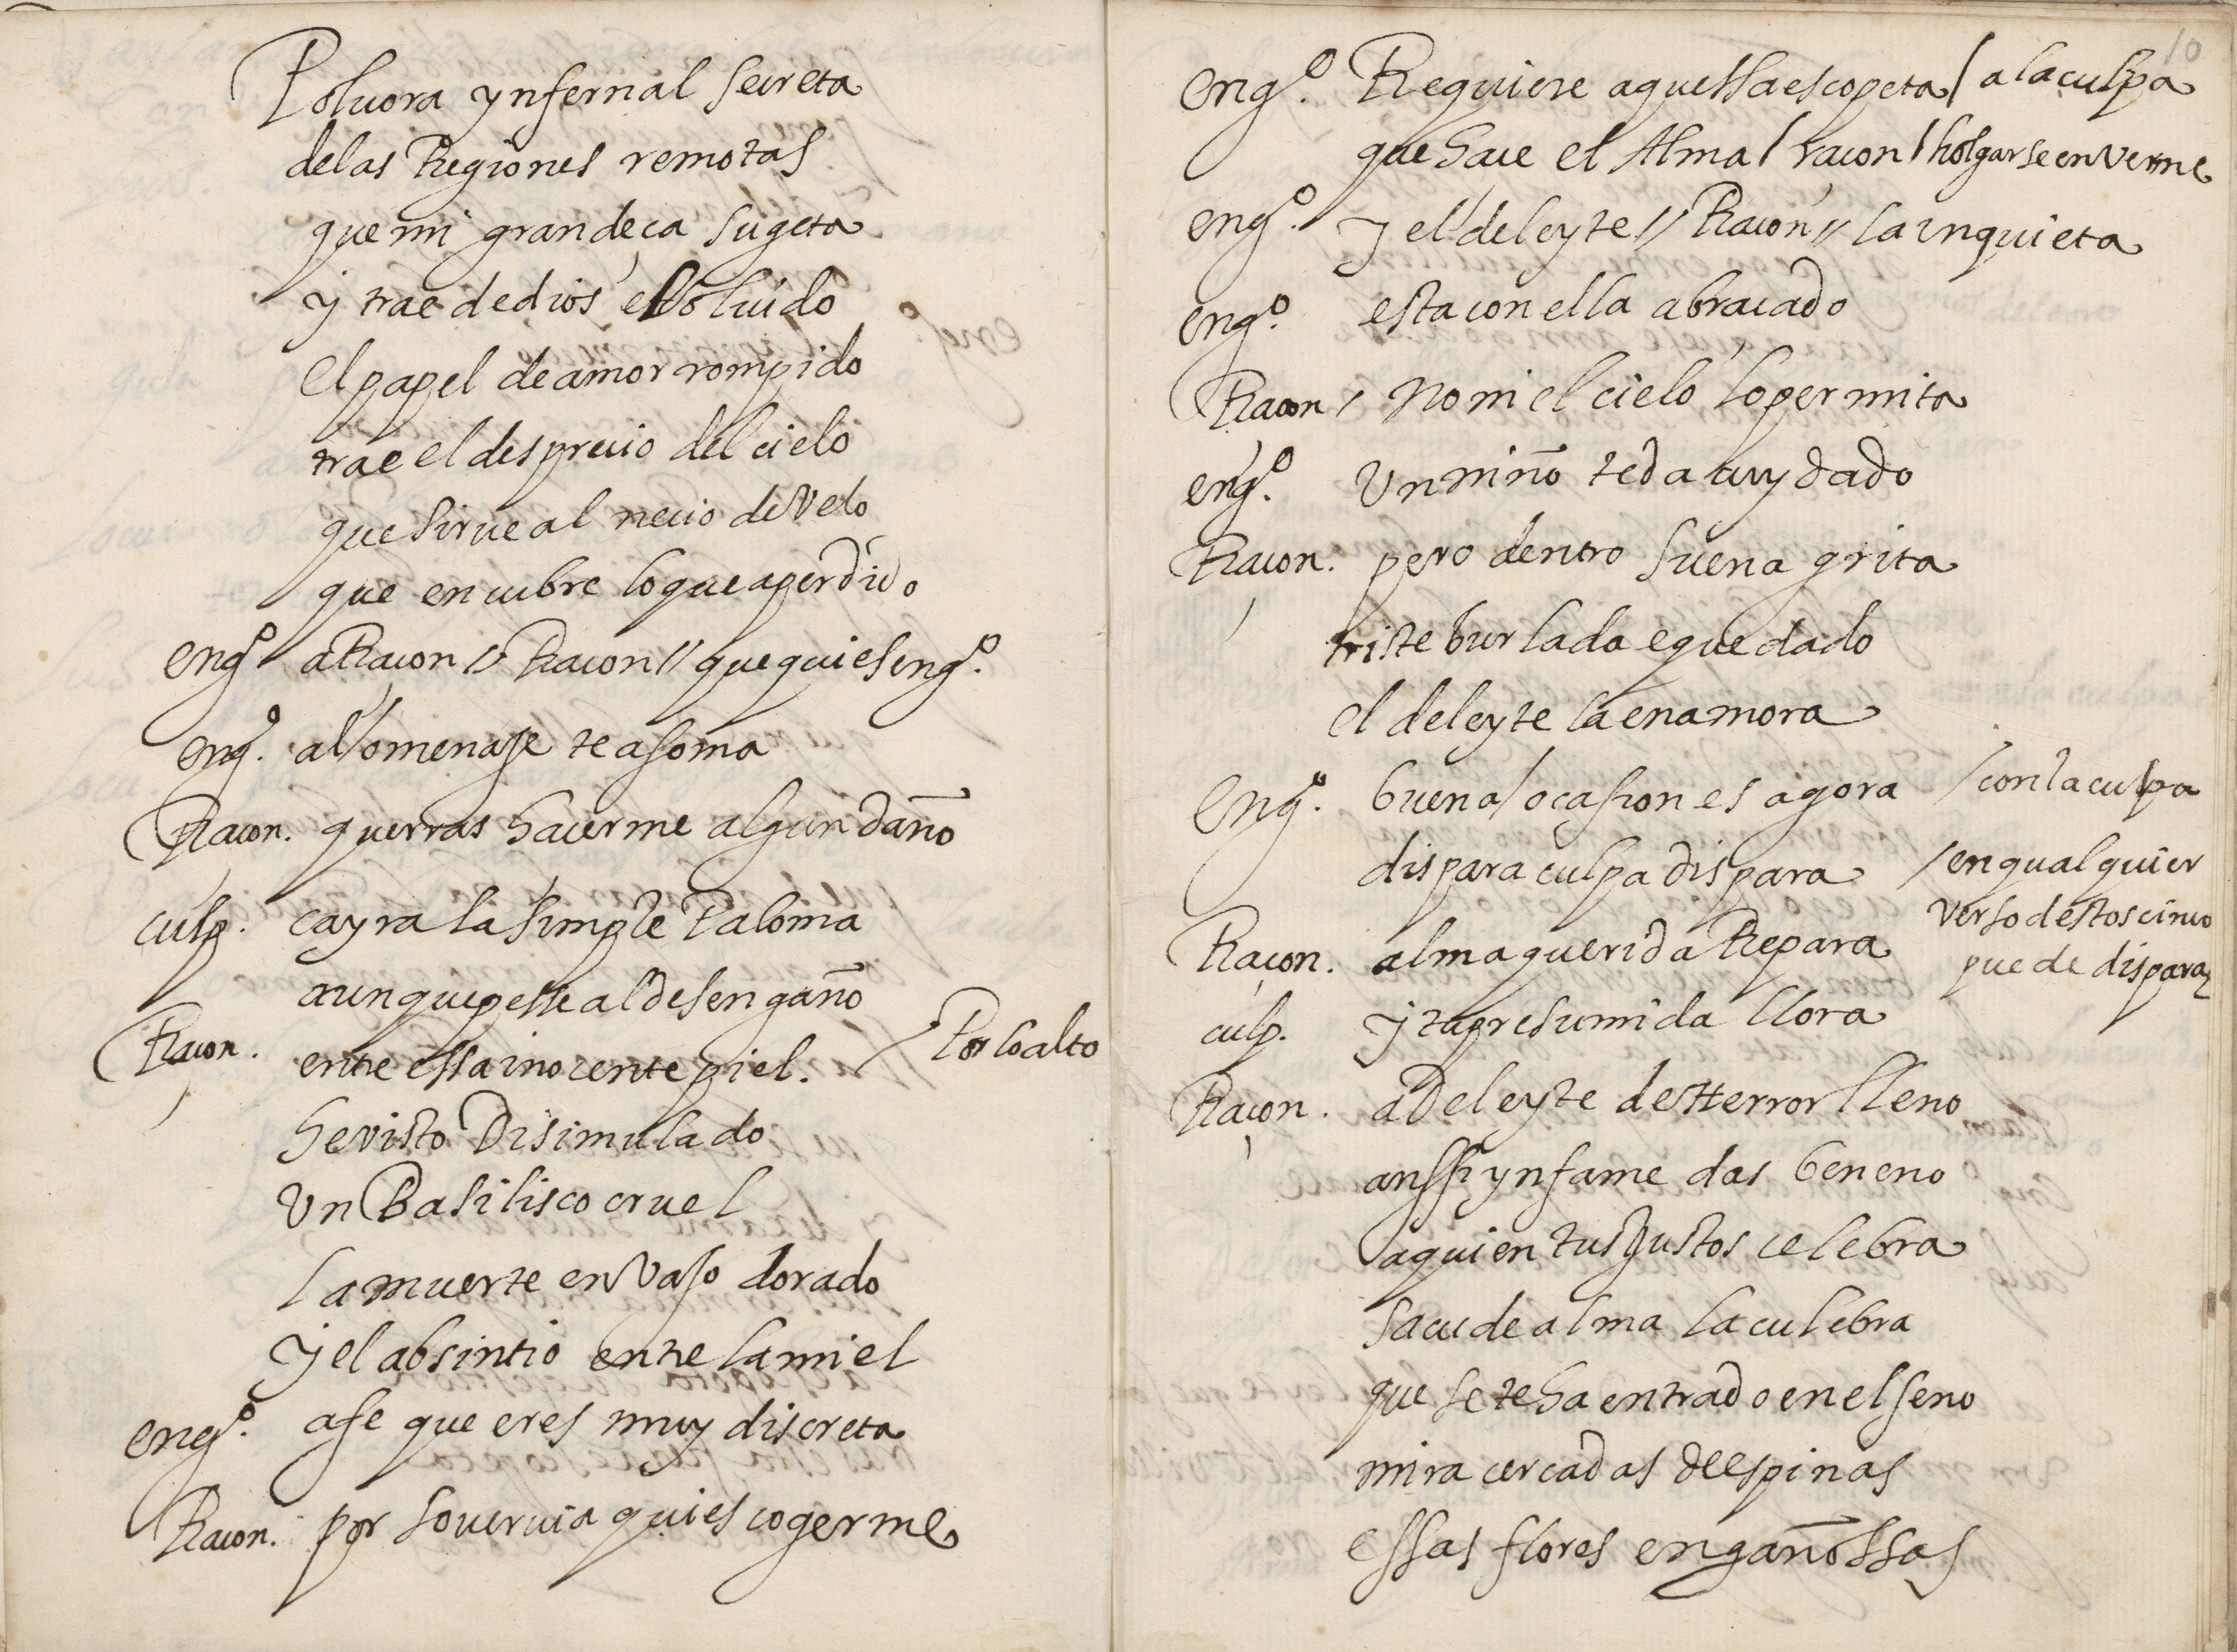 Poluora ynfernal secreta
de las Regiones remotas
que mi grandeça sugeta
y trae de dios el oluido
el papel de amor rompido
trae el desprecio del cielo
que sirue al necio de Velo
que encubre lo que a perdido
engº a Raçon // Raçon // que quies engº.
engº. al omenaje te asoma
Raçon. querras hacerme algun daño
culp. cayra la simple Paloma
aunque pesse al desengaño
Raçon. entre essa inocente piel. / Por lo alto
he visto Disimulado
Un Basilisco cruel
la muerte en Vaso dorado
y el absintio entre la miel
engº. a fe que eres muy discreta
Raçon. por souervia quies cogerme
10
engº. Requiere aquessa escopeta / a la culpa
que hace el Alma / raçon / holgarse en Verme
engº. y el deleyte // Raçon // la inquieta
engº. esta con ella abraçado
Raçon / no mi el cielo lo permita
engº. Un niño te da cuydado
Raçon. pero dentro suena grita
triste burlada e quedado
el deleyte la enamora
Engº. buena ocasion es agora / con la culpa
dispara culpa dispara / en qualquier
verso destos cinco
puede disparar
Raçon. alma querida Repara
culp. y tu presumida llora
Raçon. a Deleyte de Herror lleno
anssi ynfame das beneno
a quien tus Justos celebra
sacude alma la culebra
que se te ha entrado en el seno
mira cercadas de espinas
essas flores engañossas